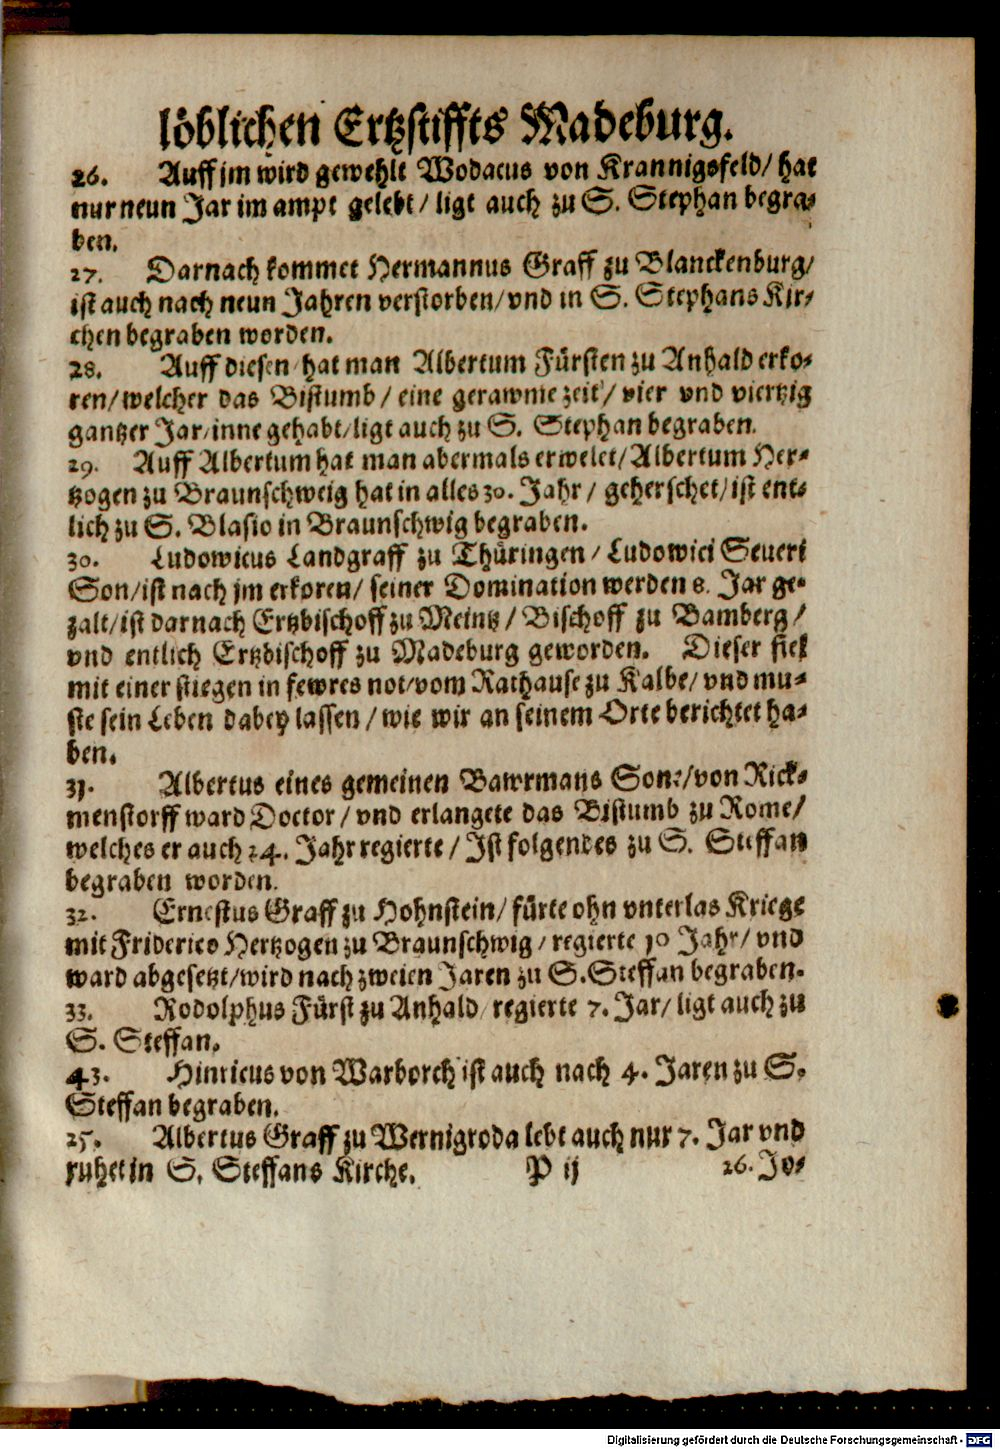 löblichen Ertzstiffts Madeburg.
26. Auff jm wird gewehlt Wodacus von Krannigsfeld/ hat
nur neun Jar im ampt gelebt/ ligt auch zu S. Stephan begra-
ben.
27. Darnach kommet Hermannus Graff zu Blanckenburg/
ist auch nach neun Jahren verstorben/ vnd in S. Stephans Kir-
chen begraben worden.
28. Auff diesen hat man Albertum Fürsten zu Anhald erko-
ren/ welcher das Bistumb/ eine gerawme zeit/ vier vnd viertzig
gantzer Jar/ inne gehabt/ ligt auch zu S. Stephan begraben.
29. Auff Albertum hat man abermals erwelet/ Albertum Her-
tzogen zu Braunschweig hat in alles 30. Jahr/ geherschet/ ist ent-
lich zu S. Blasio in Braunschwig begraben.
30. Ludowicus Landgraff zu Thüringen/ Ludowici Seueri
Son/ ist nach jm erkoren/ seiner Domination werden 8. Jar ge-
zalt/ ist darnach Ertzbischoff zu Meintz/ Bischoff zu Bamberg/
vnd entlich Ertzbischoff zu Madeburg geworden. Dieser fiel
mit einer stiegen in fewres not/ vom Rathause zu Kalbe/ vnd mu-
ste sein Leben dabey lassen/ wie wir an seinem Orte berichtet ha-
ben.
31. Albertus eines gemeinen Bawrmans Sone/ von Rick-
menstorff ward Doctor/ vnd erlangete das Bistumb zu Rome/
welches er auch 24. Jahr regierte/ Ist folgendes zu S. Steffan
begraben worden.
32. Ernestus Graff zu Hohnstein/ fürte ohn vnterlas Kriege
mit Friderico Hertzogen zu Braunschwig/ regierte 10 Jahr/ vnd
ward abgesetzt/ wird nach zweien Jaren zu S. Steffan begraben.
33. Rodolphus Fürst zu Anhald/ regierte 7. Jar/ ligt auch zu
S. Steffan.
43. Hinricus von Warborch ist auch nach 4. Jaren zu S.
Steffan begraben.
25. Albertus Graff zu Wernigroda lebt auch nur 7. Jar vnd
ruhet in S. Steffans Kirche. P ij 26. Jo-
Digitalisierung gefördert durch die Deutsche Forschungsgemeinschaft - DFG